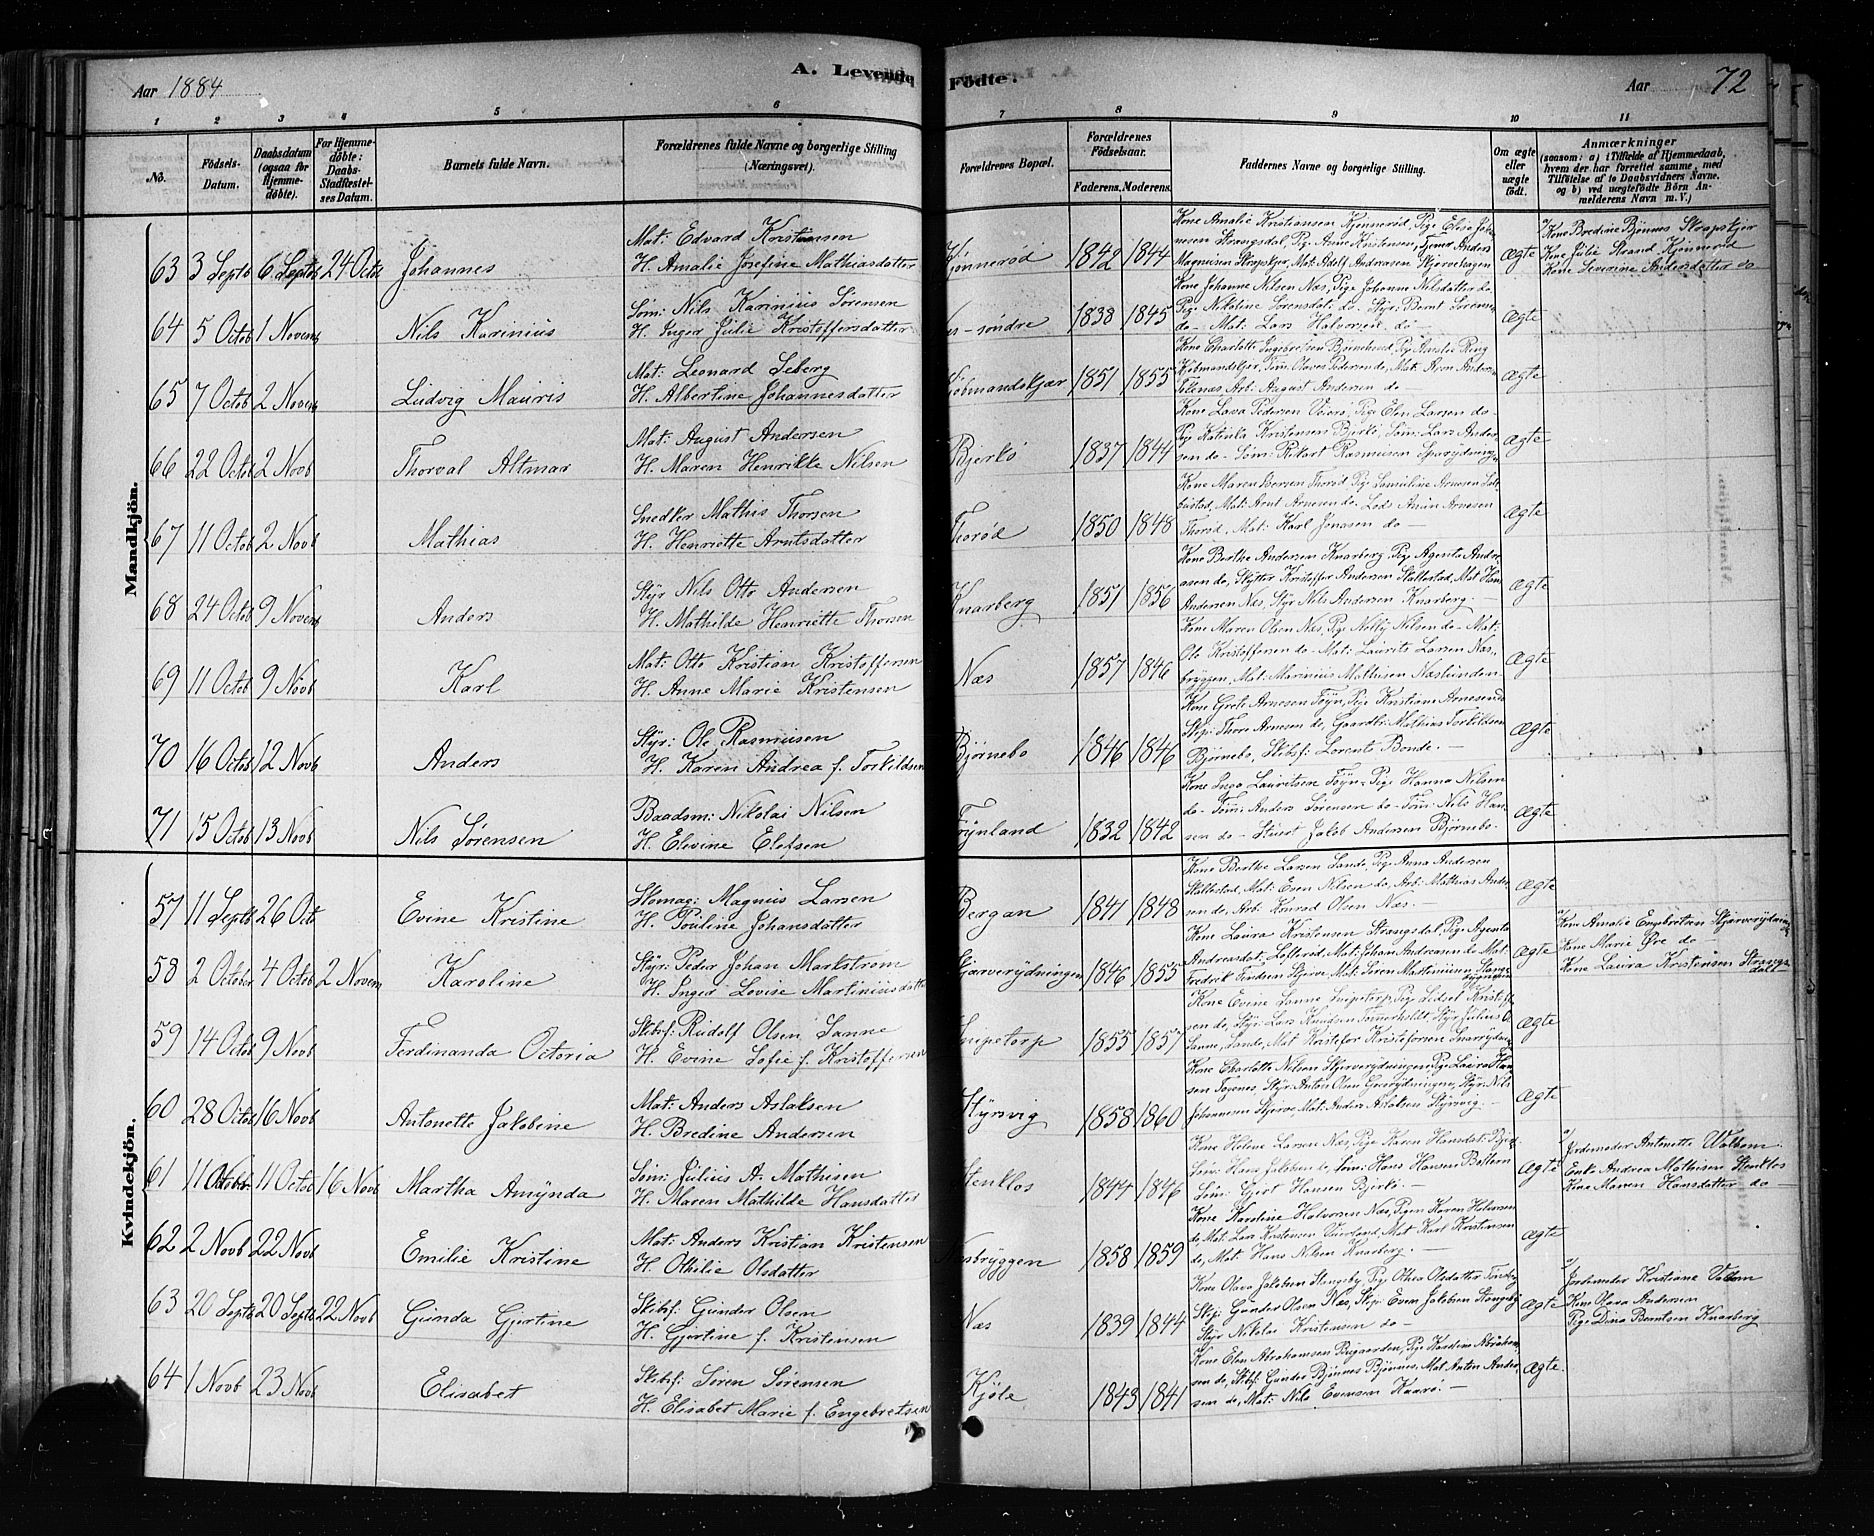 Aar 1884
A. Levende
Födte.
Aar 72
1 2 3 4 5 6 7 8 9 10 11
No.
Födsels-Datum.
Daabsdatum (ogsaa for Hjemmedöbte).
For Hjemmedöbte: Daabs-Stadfæstelses Datum.
Barnets fulde Navn.
Forældrenes fulde Navne og borgerlige Stilling (Næringsvei).
Forældrenes Bopæl.
Forældrenes Födselsaar.
Faderens. Moderens.
Faddernes Navne og borgerlige Stilling.
Om ægte eller uægte födt.
Anmærkninger
(saasom: a) i Tilfælde af Hjemmedaab, hvem der har forrettet samme, med Tilföielse af to Daabsvidners Navne, og b) ved uægtefödte Børn Anmelderens Navn m. V.)
Mandkjön.
63 3 Septb 6 Septb 24 Octb Johannes
Mat: Edvard Kristiansen
H. Amalie Josefine Mathiasdatter
Hjønnerød 1842 1844
Kone Amalie Kristiansen Kjønnerød, Pige Elise
Magnusen Strapskjer, Mat: Adolf Andreasen
Ægte
Kone Bredine Bjønnes Strapskjer
Kone Julie Strand Kjønnerød
Kone Severine Andersdatter do
64 5 Octob 1 Novemb Nils Karinius
Søm: Nils Karinius Sørensen
H. Inger Julie Kristoffersdatter
søndre 1838 1845
Kone Johanne Nilsen Næs, Pige Johanne Nilsdatter do
Pige Nikoline Sørensdat: do - Styr: Bernt Sørensen
do - Mat: Lars Halvorsen do -
Ægte
65 7 Octob 2 Novemb Ludvig Mauris
Mat: Leonard Seberg
H. Albertine Johannesdatter
Kjøbmandskjær 1851 1855
Kone Charlotte Ingebretsen
Arb: August Andersen do -
Ægte
66 22 Octob 2 Novb Thorval Altmar
Mat: August Andersen
H. Maren Henrikke Nilsen
Bjerkø 1837 1844
Kone Lava Pedersen Veierø, Pige Elen Larsen do -
Pige Katinka Kristensen Bjerkø, Søm: Lars Andersen do - Søm: Rikart Rasmusen
Ægte
67 11 Octob 2 Novb Mathias
Snedker Mathis Thorsen
H. Henriette Arntsdatter
Thorød 1850 1848
Kone Maren Berven Thorød, Pige
Mat: Arnt Arnesen do
Thorød, Mat: Karl Jonasen do -
Ægte
68 24 Octob 9 Novemb Anders
Styr Nils Otto Andersen
H. Mathilde Henriette Thorsen
Knarberg 1851 1856
Kone Berthe Andersen Knarberg, Pige Agente Andreasen do, Skytter Kristoffer Andersen Skallestad, Mat Hans
Andersen Næs, Styr Nils Andersen Knarberg. -
Ægte
69 11 Octob 9 Novb Karl
Mat: Otto Kristian Kristoffersen
H. Anne Marie Kristensen
Næs 1857 1846
Kone Maren Olsen Næs, Pige Nelly Nilsen do - Mat:
Ole Kristoffersen do - Mat: Laurits Larsen Næsbryggen, Mat: Marinius Mathisen Næslunden
Ægte
70 16 Octob 12 Novb Anders
Styr: Ole Rasmusen
H. Karen Andrea f. Torkildsen
Bjørnebo 1846 1846
Kone Grete Arnesen Føyn, Pige Kristiane Arnesen do
Skip: Thore Arnesen do, Gaardb: Mathias Torkildsen
Bjørnebo, Skibsf: Lorents Bonde. -
Ægte
71 15 Octob 13 Novb Nils Sørensen
Baadsm: Nikolai Nilsen
H. Elevine Elefsen
Føynland 1832 1842
Kone Inga Lauritsen Føyn, Pige Hanna Nilsen
do - Tøm: Anders Sørensen do - Tøm: Nils Hansen do - Stuert Jakob Andersen Bjørnebo.
Ægte
Kvindekjön.
57 11 Septb 26 Oct. Evine Kristine
Skomag: Magnus Larsen
H. Pouline Johansdatter
Bergan 1841 1848
Kone Berthe Larsen Lande, Pige Anna Andersen
Skallestad, Mat: Even Nilsen do, Arb: Mathias Andersen do, Arb. Konrad Olsen Næs. -
Ægte
58 2 October 4 Octob 2 Novem Karoline
Styr: Peder Johan Markstrøm
H. Inger Lovise Martiniusdatter
Skjærverydningen 1846 1855
Kone Laura Kristensen Strangsdal, Pige Agente
Andreasdat. Lofterød, Mat: Johan Andreasen do Mat:
Fredrik Findsen Skjerve, Mat: Søren Martinusen
Ægte
Kone Amalie Engebretsen Skjærverydningen
Kone Marie Øre do -
Kone Laura Kristensen Strangsdall -
59 14 Octob 9 Novb Ferdinanda Octoria
Skibsf: Rudolf Olsen Sanne
H. Evine Sofie f. Kristoffersen
Snipetorp 1855 1857
Kone Evine Sanne Snipetorp, Pige Lidsel Kristoffersen do, Styr: Lars Knudsen Tømmerholdt, Styr Julius O.
Sanne, Sande, Mat Kristofer Kristofersen
Ægte
60 28 Octob 16 Novb Antonette Jakobine
Mat: Anders Aslaksen
H. Bredine Andersen
Styrsvig 1858 1860
Kone Charlotte Nilsen Skjerverydningen, Pige Laura Hansen Tegenes, Styr: Anton Olsen
Johannesen Skjerve, Mat: Anders Aslaksen Styrsvig. -
Ægte
61 11 Octob 11 Octob 16 Novb Martha Amynda
Søm: Julius A. Mathisen
H. Maren Mathilde Hansdatter
Stenklos 1844 1846
Kone Helene Larsen Næs, Pige Karen Hansdat: Bjerkø
Søm: Hans Jakobsen do, Søm: Hans Hansen Bolæren
Søm: Gjert Hansen Bjerkø. -
Ægte
Jordemoder Antonette Walbom
Enke Andrea Mathisen Stenklos
Kone Maren Hansdatter do -
62 2 Novb 22 Novb Emilie Kristine
Mat: Anders Kristian Kristensen
H. Othilie Olsdatter
Næsbryggen 1858 1859
Kone Karoline Halvorsen Næs, Pigen Karen Halvorsen
do, Mat. Lars Kristensen Veierland, Mat Karl Kristensen
do, Mat. Hans Nilsen Knarberg. -
Ægte
63 20 Septb 20 Septb 22 Novb Gunda Gjertine
Skibsf: Gunder Olsen
H. Gjertine f. Kristensen
Næs 1839 1844
Kone Olava Jakobsen Stangeby, Pige Othea Olsdatter Tønsberg
Skip: Gunder Olsen Næs, Skip: Even Jakobsen Stangeby
Styr Nikolai Kristensen do -
Ægte
Jordemoder Kristiane Valbom
Kone Olava Andersen
Pige Dina Berntsen Knarberg
64 1 Novb 23 Novb Elisabet
Skibsf: Søren Sørensen
H. Elisabet Marie f. Engebretsen
Kjøle 1843 1841
Kone Elen Abrahamsen Bugaarden, Pige Karoline Abrahamsen do, Skibsf: Gunder Bjønnes Bjønnes, Mat: Anton Andersen do, Mat: Nils Evensen Kaarø. -
Ægte